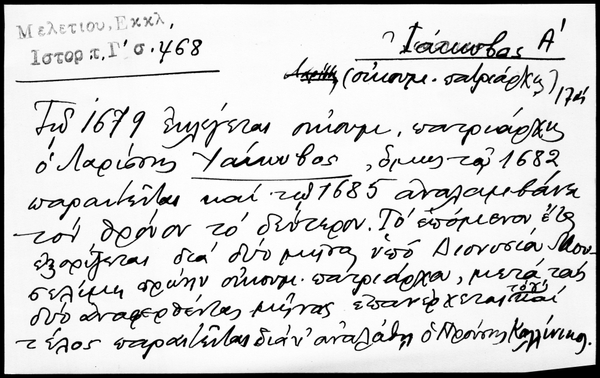 Μελετίου, Εκκλ.
Ιστορ τ. Γ' σ. 468
Ἰάκωβος Α'
(οἰκουμ. πατριάρχης) 17ος
Τῷ 1679 ἐκλέγεται οἰκουμ. πατριάρχης
ὁ Λαρίσσης Ἰάκωβος, ὅμως τῷ 1682
παραιτεῖται καί τῷ 1685 ἀναλαμβάνει
τόν θρόνον τό δεύτερον. Τό ἑπόμενον ἔτος
ἐξορίζεται διά δύο μῆνας ὑπό Διονυσίου Μου-
σελίμη πρώην οἰκουμ. πατριάρχου, μετά τούς
δύο ἀναφερθέντας μῆνας ἐπανέρχεται καί
τέλος παραιτεῖται διά ν' ἀναλάβῃ ὁ Προύσης Καλλίνικος.